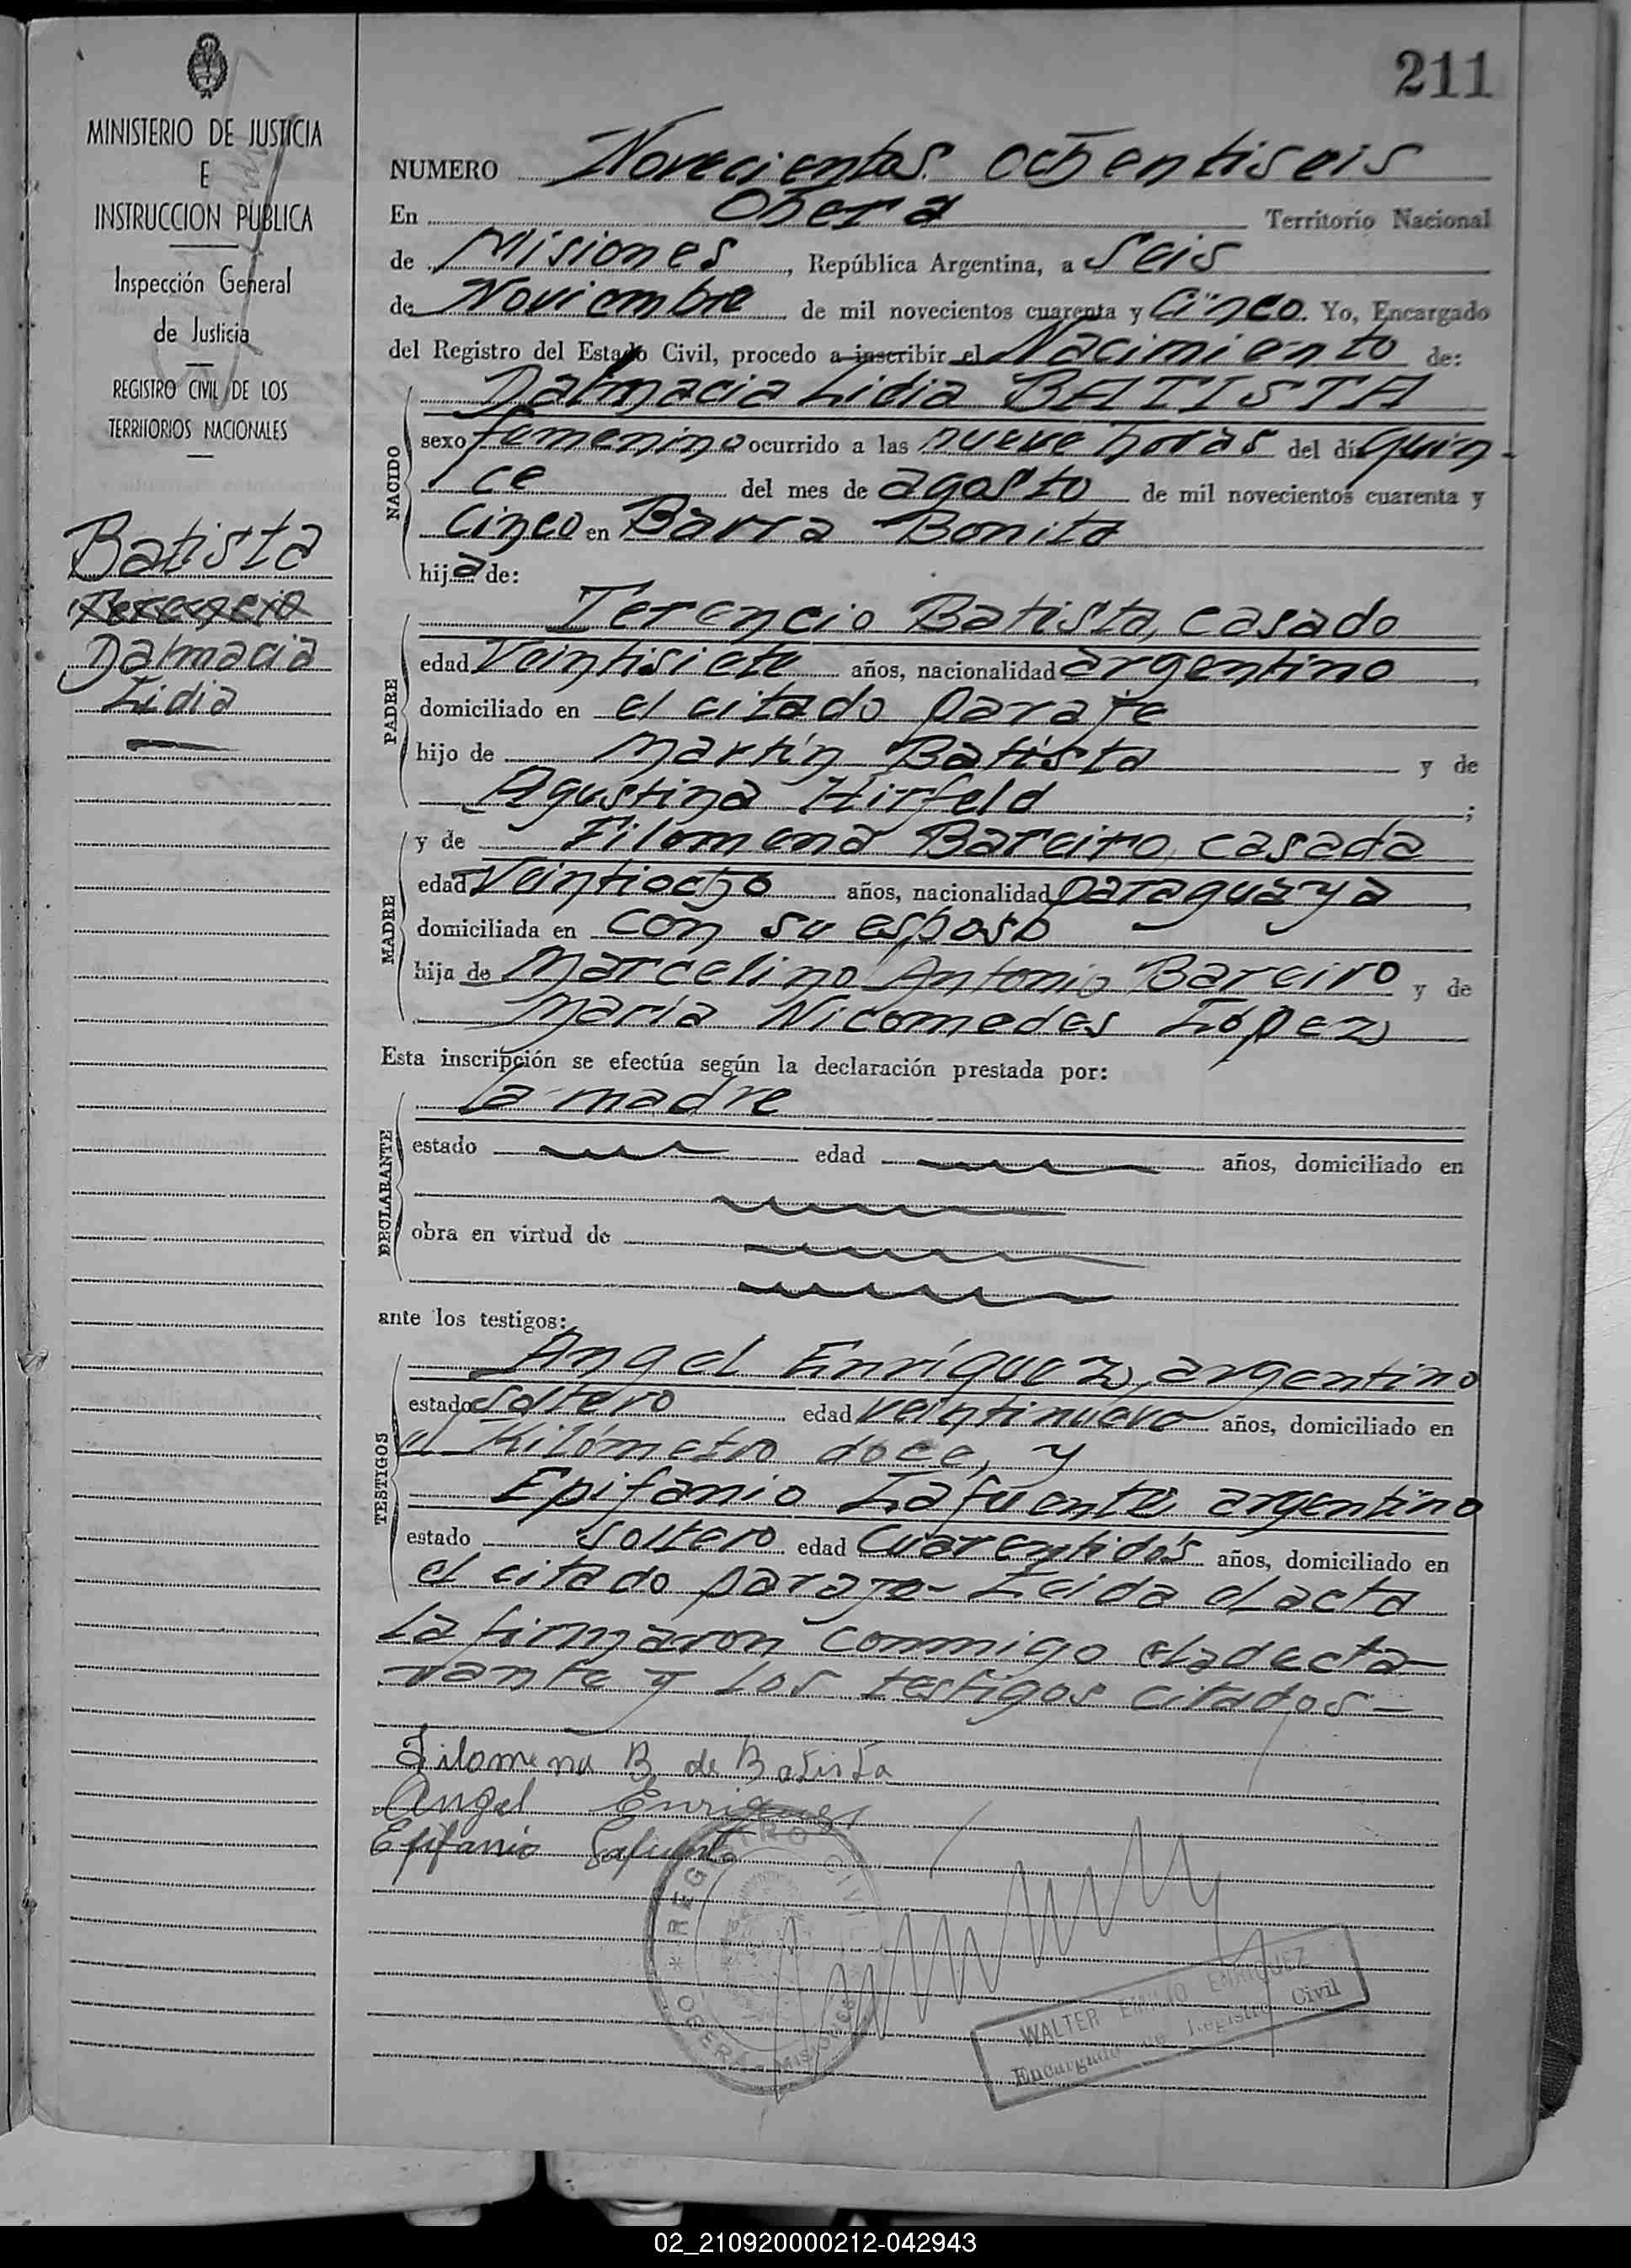 211
MINISTERIO DE JUSTICIA
E
INSTRUCCION PUBLICA
Inspección General
de Justicia
REGISTRO CIVIL DE LOS
TERRITORIOS NACIONALES
Batista
Terencio
Dalmacia
Lidia
NUMERO Novecientos ochentiseis
En Oberá Territorio Nacional
de Misiones, República Argentina, a Seis
de Noviembre de mil novecientos cuarenta y cinco. Yo, Encargado
del Registro del Estado Civil, procedo a inscribir el Nacimiento de:
Dalmacia Lidia BATISTA
NACIDO
sexo femenino ocurrido a las nueve horas del día quin-
ce del mes de agosto de mil novecientos cuarenta y
cinco en Barra Bonita
hija de:
Terencio Batista, casado
PADRE
edad Veintisiete años, nacionalidad argentino
domiciliado en el citado paraje
hijo de Martín Batista y de
Agustina Hirfeld;
y de Filomena Bareiro, casada
MADRE
edad Veintiocho años, nacionalidad paraguaya
domiciliada en con su esposo
hija de Marcelino Antonio Bareiro y de
María Nicomedes López
Esta inscripción se efectúa según la declaración prestada por:
la madre
DECLARANTE
estado edad años, domiciliado en
obra en virtud de
ante los testigos:
Angel Enríquez, argentino
TESTIGOS
estado soltero edad veintinueve años, domiciliado en
el Kilómetro doce, y
Epifanio Lafuente, argentino
estado soltero edad cuarentidós años, domiciliado en
el citado paraje- Leida el acta
la firmaron conmigo la decla-
rante y los testigos citados-
Filomena B. de Batista
Angel Enriquez
Epifanio Lafuente
REGISTRO CIVIL
OBERA - MISIONES
WALTER EMILIO ENRIQUEZ
Encargado de Registro Civil
02_210920000212-042943